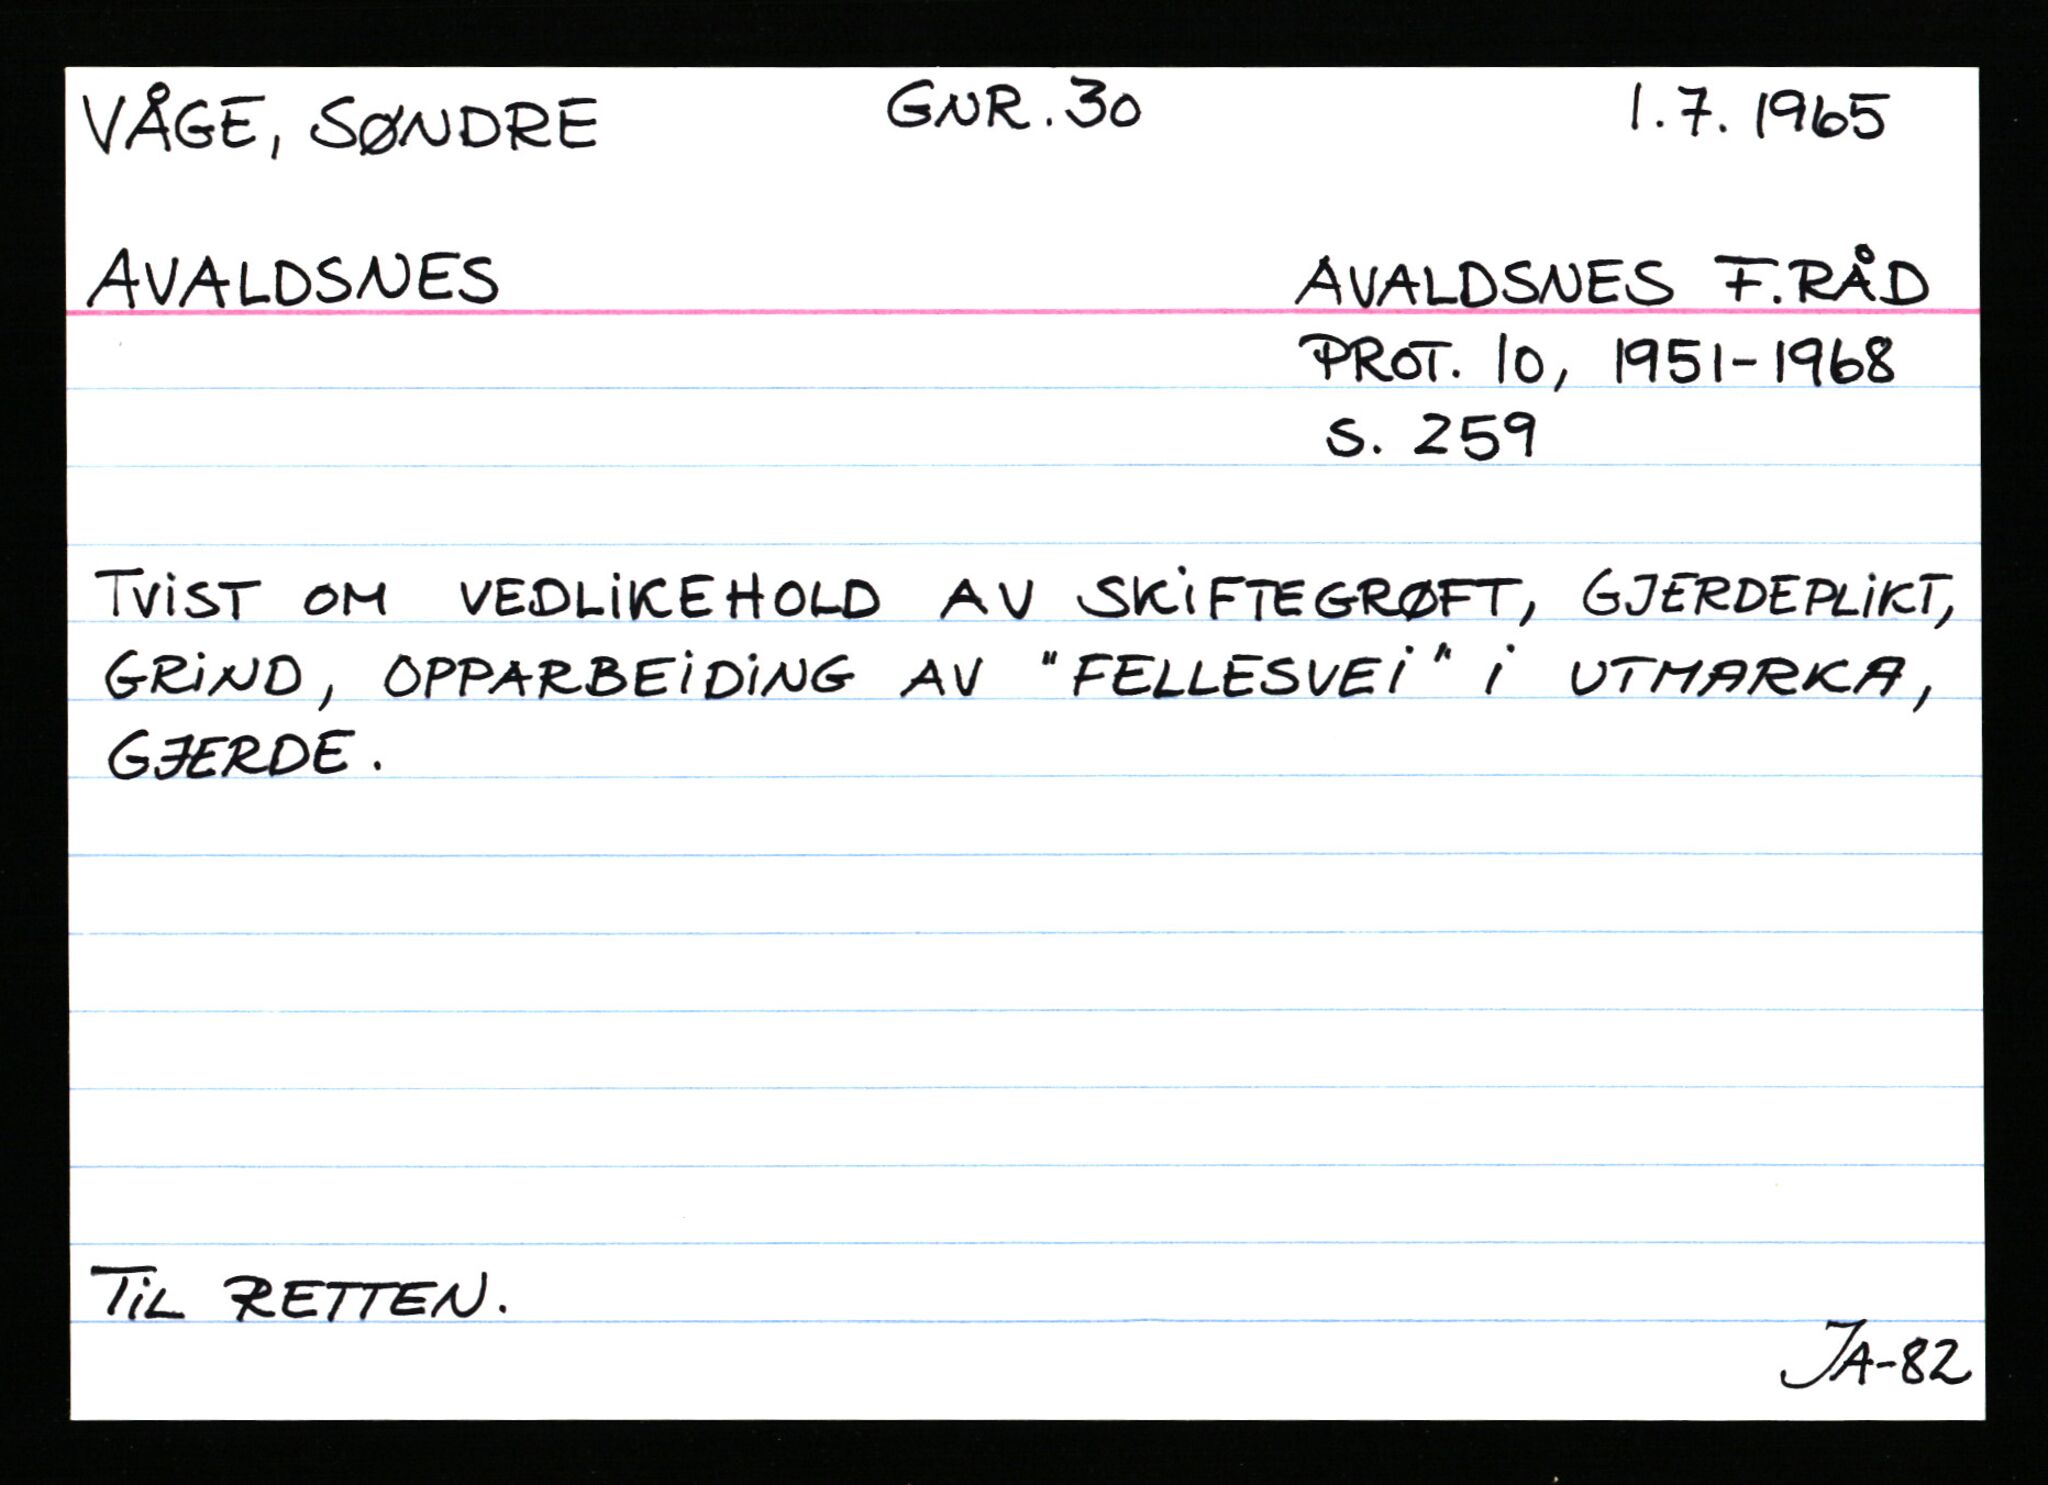 VÅGE, SØNDRE GNR. 30 1.7.1965
AVALDSNES AVALDSNES F.RÅD
PROT. 10, 1951-1968
S. 259
TViST OM VEDLiKEHOLD AV SKiFTEGRØFT, GJERDEPLiKT,
GRiND, OPPARBEiDiNG AV "FELLESVEi" i UTMARKA,
GJERDE.
TiL RETTEN.
JA-82